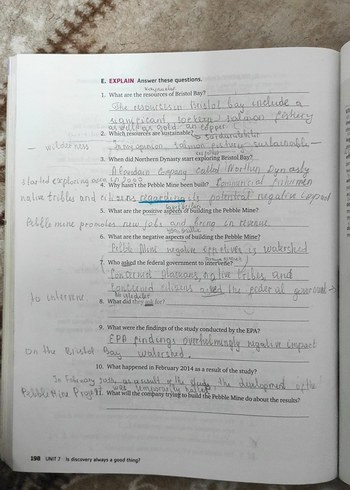 E. EXPLAIN Answer these questions.
1. What are the resources of Bristol Bay?
The resources in Bristol bay include a
significant sockeye salmon fishery
as well as gold an copper
2. Which resources are sustainable?
- wilderness
salmon fishery sustainable -
3. When did Northern Dynasty start exploring Bristol Bay?
A Canadian Company called Northern Dynasty
started exploring area in
4. Why hasn't the Pebble Mine been built?
Commercial fishermen
native tribes and citizens regarding its potential negative impact
5. What are the positive aspects of building the Pebble Mine?
Pebble mine promotes new jobs and bring in revenue
6. What are the negative aspects of building the Pebble Mine?
Pebble Mine negative is watershed
7. Who asked the federal government to intervene?
Concerned Alaskans, native tribes and
concerned citizens asked the federal government
to intervene
8. What did they ask for?
9. What were the findings of the study conducted by the EPA?
EPA findings overwhelmingly negative impact
on the Bristol Bay watershed.
10. What happened in February 2014 as a result of the study?
In February 2014 as a result of the study the development of the
Pebble Mine Project was temporarily halted
11. What will the company trying to build the Pebble Mine do about the results?
198 UNIT 7 Is discovery always a good thing?